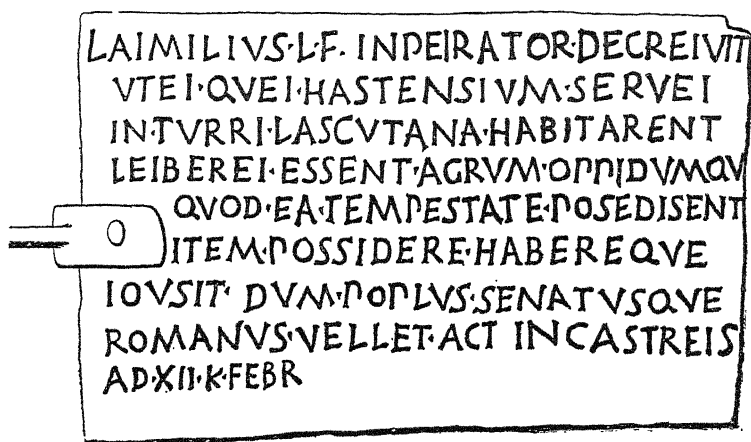 L·AIMILIVS·L·F·INPEIRATOR·DECREIVIT
VTEI·QVEI·HASTENSIVM·SERVEI
IN·TVRRI·LASCVTANA·HABITARENT
LEIBEREI·ESSENT·AGRVM·OPPIDVMQV
QVOD·EA·TEMPESTATE·POSEDISENT
ITEM·POSSIDERE·HABEREQVE
IOVSIT·DVM·POPLVS·SENATVSQVE
ROMANVS·VELLET·ACT IN CASTREIS
AD·XII·K·FEBR